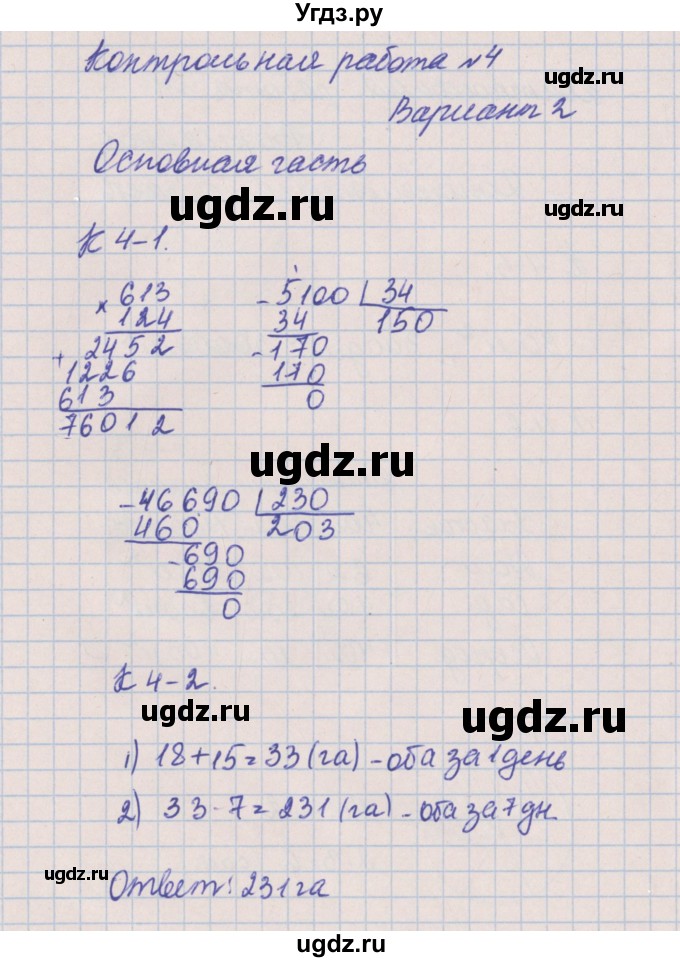 Угдз.ру
Контрольная работа №4
ugdz.ru
Вариант 2
Основная часть
ugdz.ru
К 4-1.
× 613
124
+ 2452
1226
613
76012
- 5100 | 34
34 150
- 170
170
0
ugdz.ru
- 46690 | 230
460 203
- 690
690
0
К 4-2.
ugdz.ru
ugdz.ru
1) 18+15=33 (га) - оба за 1 день
2) 33·7=231 (га) - оба за 7 дн.
ugdz.ru
Ответ: 231 га
ugdz.ru
ugdz.ru